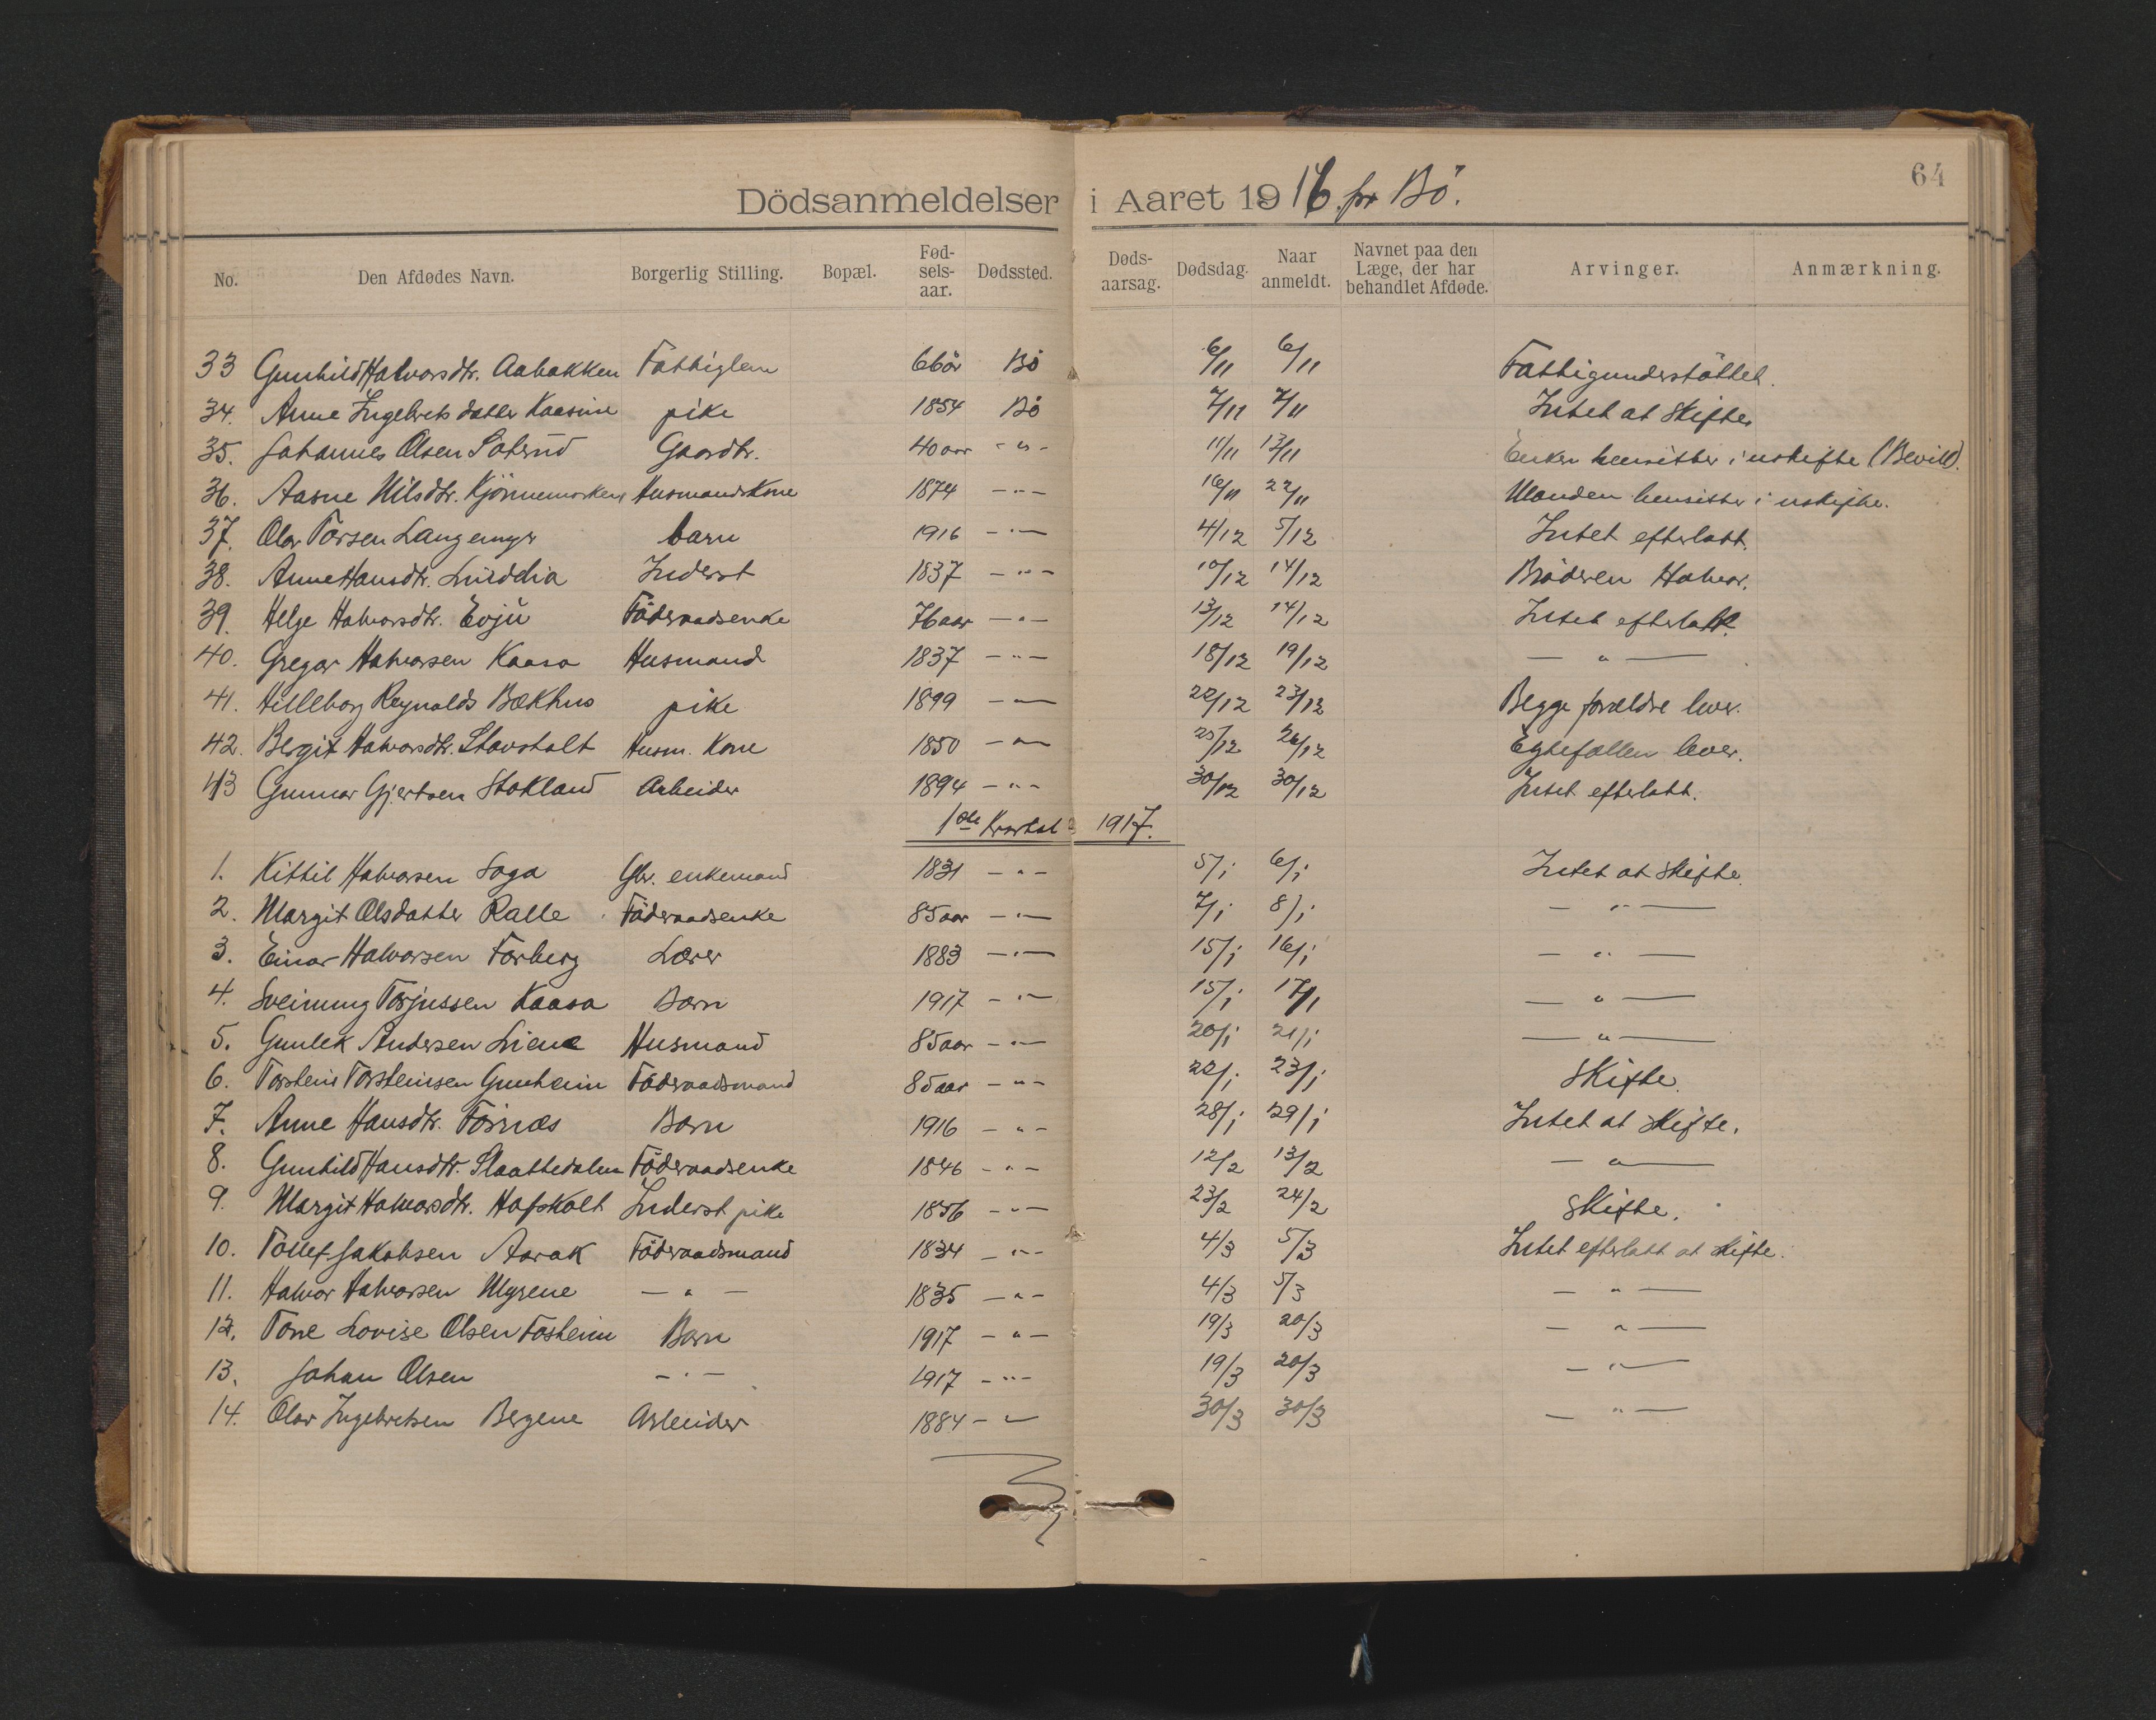 64
Dödsanmeldelser i Aaret 1916. for Bö.
No. Den Afdødes Navn. Borgerlig Stilling. Bopæl. Fød-sels-aar. Dødssted. Døds-aarsag. Dødsdag. Naar anmeldt. Navnet paa den Læge, der har behandlet Afdøde. Arvinger. Anmærkning.
33 Gunhild Halvorsdtr. Aabakken Fattiglem 66år Bö 6/11 6/11 Fattigunderstöttet.
34. Anne Ingebretsdatter Kaasine pike 1854 Bö 7/11 7/11 Intet at skifte.
35. Johannes Olsen Saterud Gaardbr. 40 aar - " - 11/11 13/11 Enken hensitter i uskifte (Bevill).
36. Aasne Nilsdtr. Husmandskone 1874 - " - 16/11 22/11 Manden hensitter i uskifte.
37. Olav Torsen Langemyr barn 1916 - " - 4/12 5/12 Intet efterlatt.
38. Anne Hansdtr. Inderst 1837 - " - 10/12 14/12 Bröderen Halvor.
39. Helge Halvorsdtr. Evju Föderaadsenke 76 aar - " - 13/12 14/12 Intet efterlatt.
40. Gregar Halvorsen Kaasa Husmand 1837 - " - 18/12 19/12 - " -
41. Hilleborg Reynolds Bækhus pike 1899 - " - 22/12 23/12 Begge forældre lever.
42. Bergit Halvorsdtr. Stavsholt Husm. Kone 1850 - " - 25/12 26/12 Egtefællen lever.
43 Gunnar Gjertsen Stokland Arbeider 1894 - " - 30/12 30/12 Intet efterlatt.
1ste Kvartal 1917.
1. Kittil Halvorsen Saga Gbr. enkemand 1831 - " - 5/1 6/1 Intet at skifte.
2. Margit Olsdatter Ralle Föderaadsenke 85 aar - " - 7/1 8/1 - " -
3. Einar Halvorsen Forberg Lærer 1883 - " - 15/1 16/1 - " -
4. Sveinung Torjussen Kaasa Barn 1917 - " - 15/1 17/1 - " -
5. Gunlek Andersen Liene Husmand 85 aar - " - 20/1 21/1 - " -
6. Torstein Torsteinsen Gunheim Föderaadsmand 85 aar - " - 22/1 23/1 Skifte.
7. Anne Hansdtr. Förnæs Barn 1916 - " - 28/1 29/1 Intet at skifte.
8. Gunhild Hansdtr. Slaattedalen Föderaadsenke 1846 - " - 12/2 13/2 - " -
9. Margit Halvorsdtr. Hafskolt Inderst pike 1856 - " - 23/2 24/2 Skifte.
10. Tollef Jakobsen Aarak Föderaadsmand 1834 - " - 4/3 5/3 Intet efterlatt at skifte.
11. Halvor Halvorsen Myrene - " - 1835 - " - 4/3 5/3 - " -
12. Tone Lovise Olsen Fosheim Barn 1917 - " - 19/3 20/3 - " -
13. Johan Olsen - " - 1917 - " - 19/3 20/3 - " -
14. Olav Ingebretsen Bergene Arbeider 1884 - " - 30/3 30/3 - " -